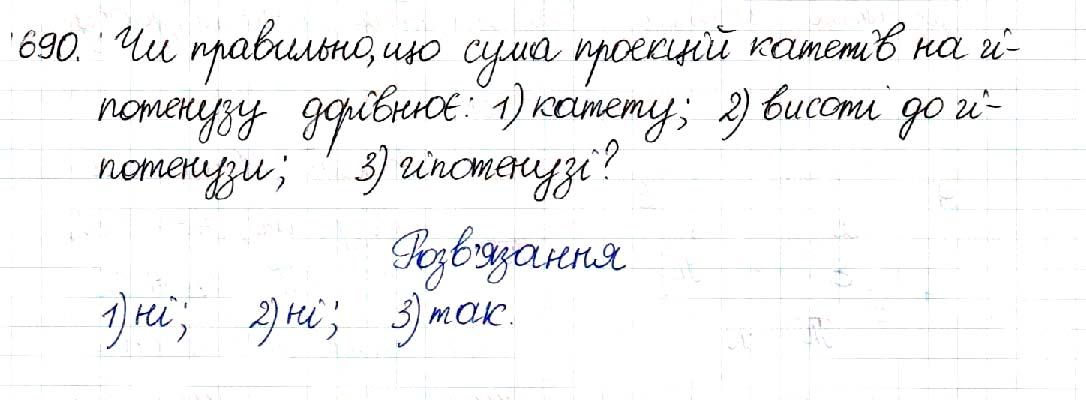 690. Чи правильно, що сума проекцій катетів на гі-
потенузу дорівнює: 1) катету; 2) висоті до гі-
потенузи; 3) гіпотенузі?
Розв'язання
1) ні; 2) ні; 3) так.